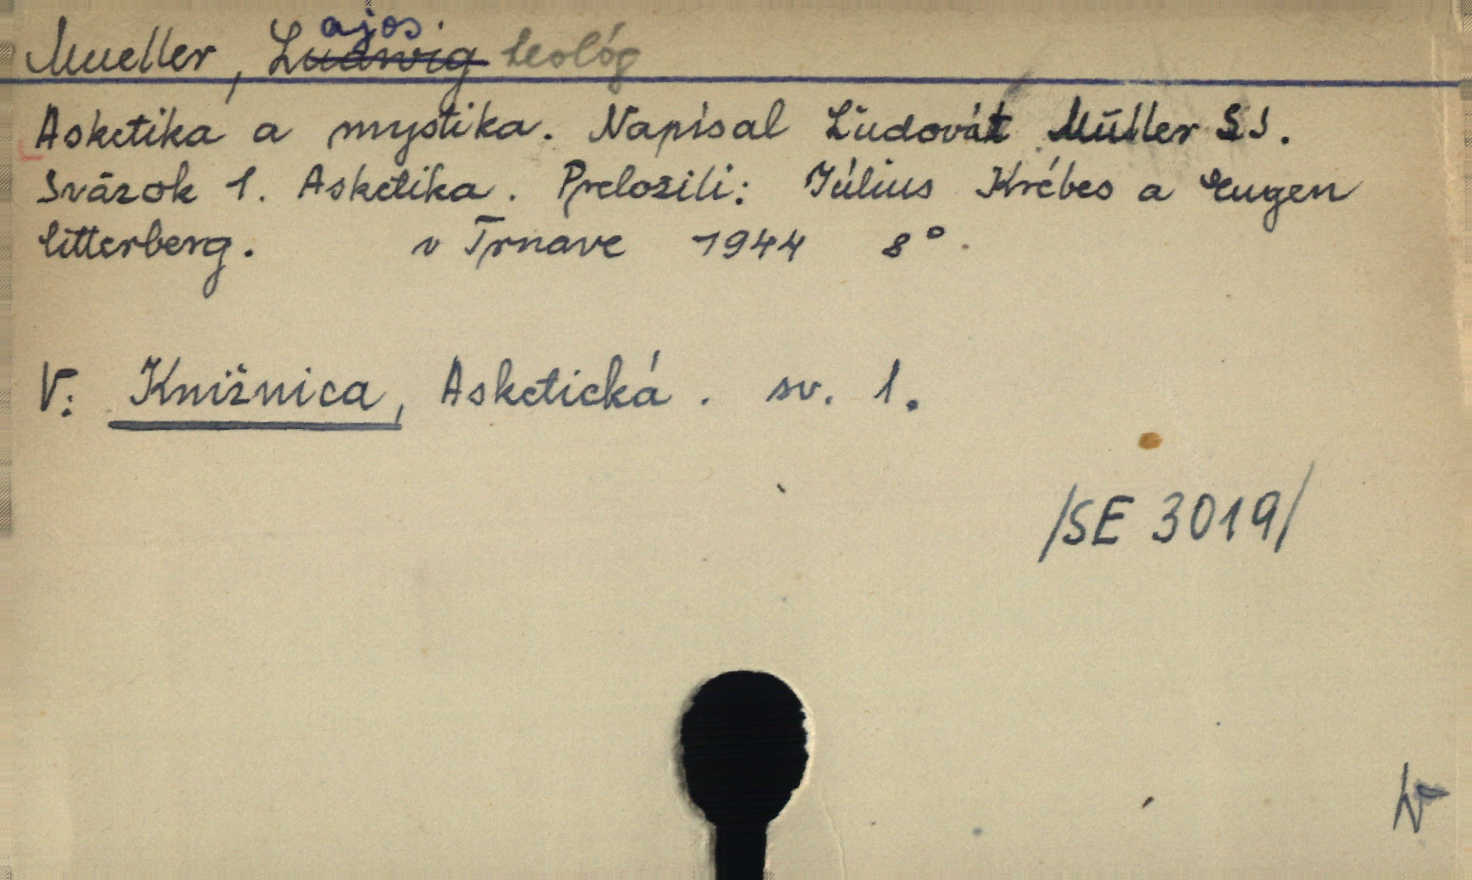 Mueller, Lajos teológ
Asketika a mystika. Napísal Ľudovít Müller SJ.
Sväzok 1. Asketika. Preložili: Július Krébes a Eugen
litterberg. v Trnave 1944 8°.
V: Knižnica, Asketická. sv. 1.
/SE 3019/